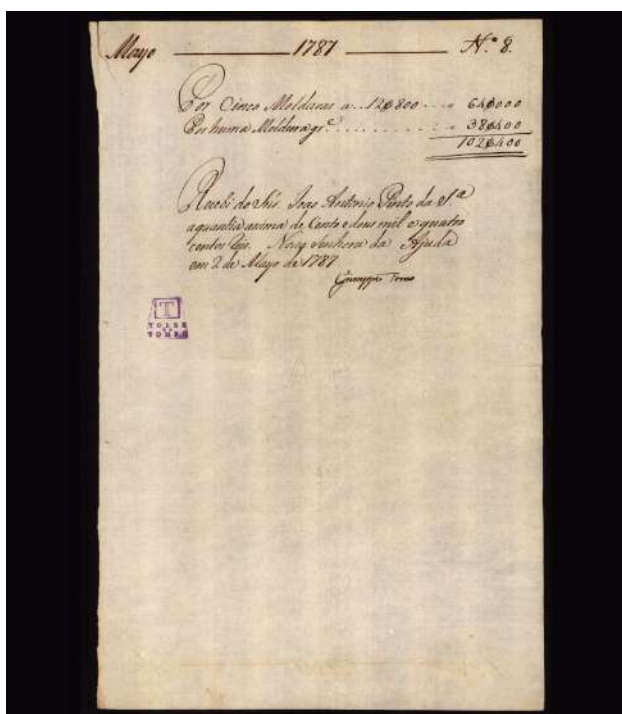 Mayo 1787 N.º 8.
Por Cinco Molduras a .. 12$800 .... 64$000
Por huma Moldura gr.e ............ 38$400
102$400
Recebi do Snr. Joao Antonio Pinto da S.a
a quantia acima de Cento e dous mil e quatro
centos Reis. Nossa Senhora da Ajuda
em 2 de Mayo de 1787
Giuseppe
T
TORRE
DO
TOMBO